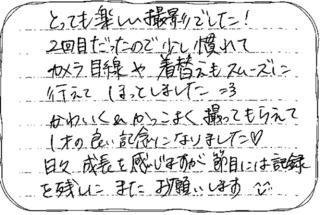 とっても楽しい撮影でした!
2回目だったので少し慣れて
カメラ目線や着替えもスムーズに
行えて ほっとしました =3
かわいく&かっこよく撮ってもらえて
1才の良い記念になりました♡
日々 成長を感じますが 節目には記録
を残しに また お願いします